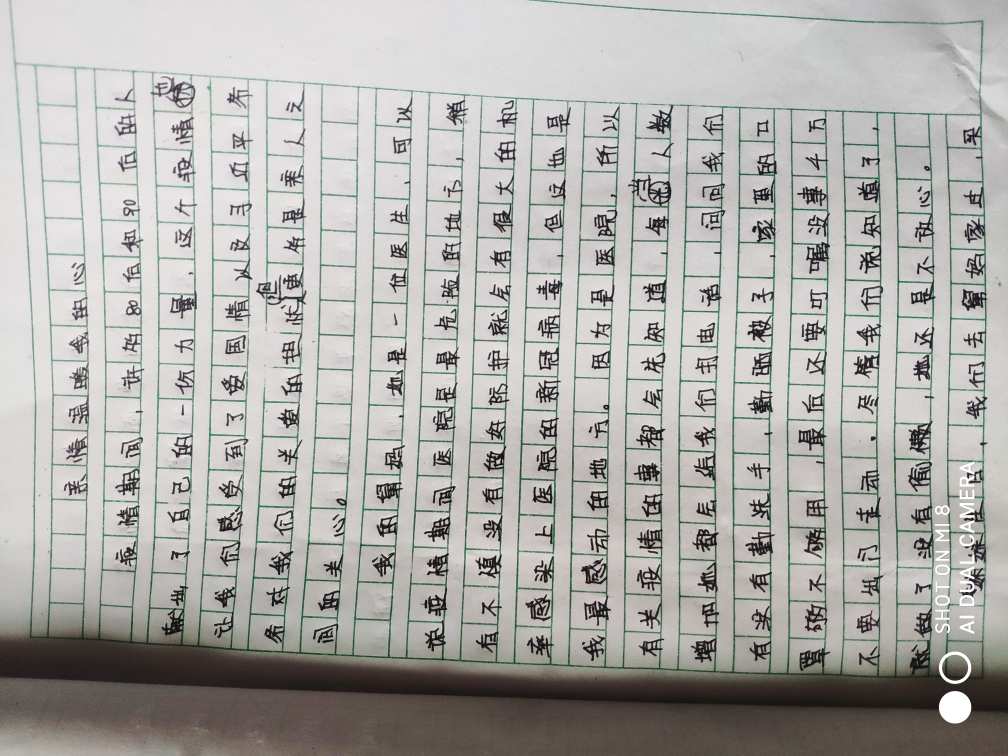 亲情温暖我的心
疫情期间，许多80后和90后的人
献出了自己的一份力量，这个疫情也
让我们感受到了爱国情以及习近平爷
爷对我们的关爱的担忧，但更多是亲人之
间的关心。
我的舅妈，她是一位医生，可以
说疫情期间医院是最危险的地方，稍
有不慎没有做好防护就会有很大的机
率感染上医院的新冠病毒，但这也是
我最感动的地方。因为是医院，所以
有关疫情的事都会先知道，每当人数
增加她都会给我们打电话，问问我们
有没有勤洗手，勤晒被子，家里的口
罩够不够用，最后还要叮嘱没事千万
不要出门走动，尽管我们说知道了，
就做了没有偷懒，她还是不放心。
，我们去舅妈家过，采
SHOT ON MI 8
AI DUAL CAMERA